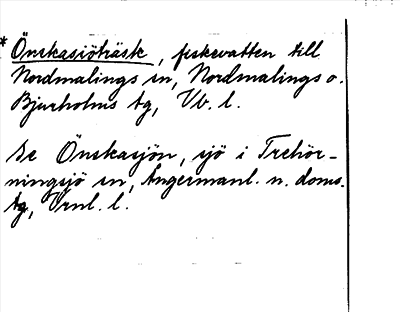 * Önskasjöträsk, fiskevatten till
Nordmalings sn, Nordmalings o.
Bjurholms tg, Vb. l.
Se Önskasjön, sjö i Trehör-
ningsjö sn, Ångermanl. n. doms.
tg, Vrnl. l.